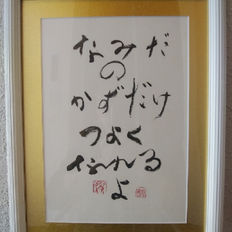 なみだ
の
かずだけ
つよく
なれる
よ